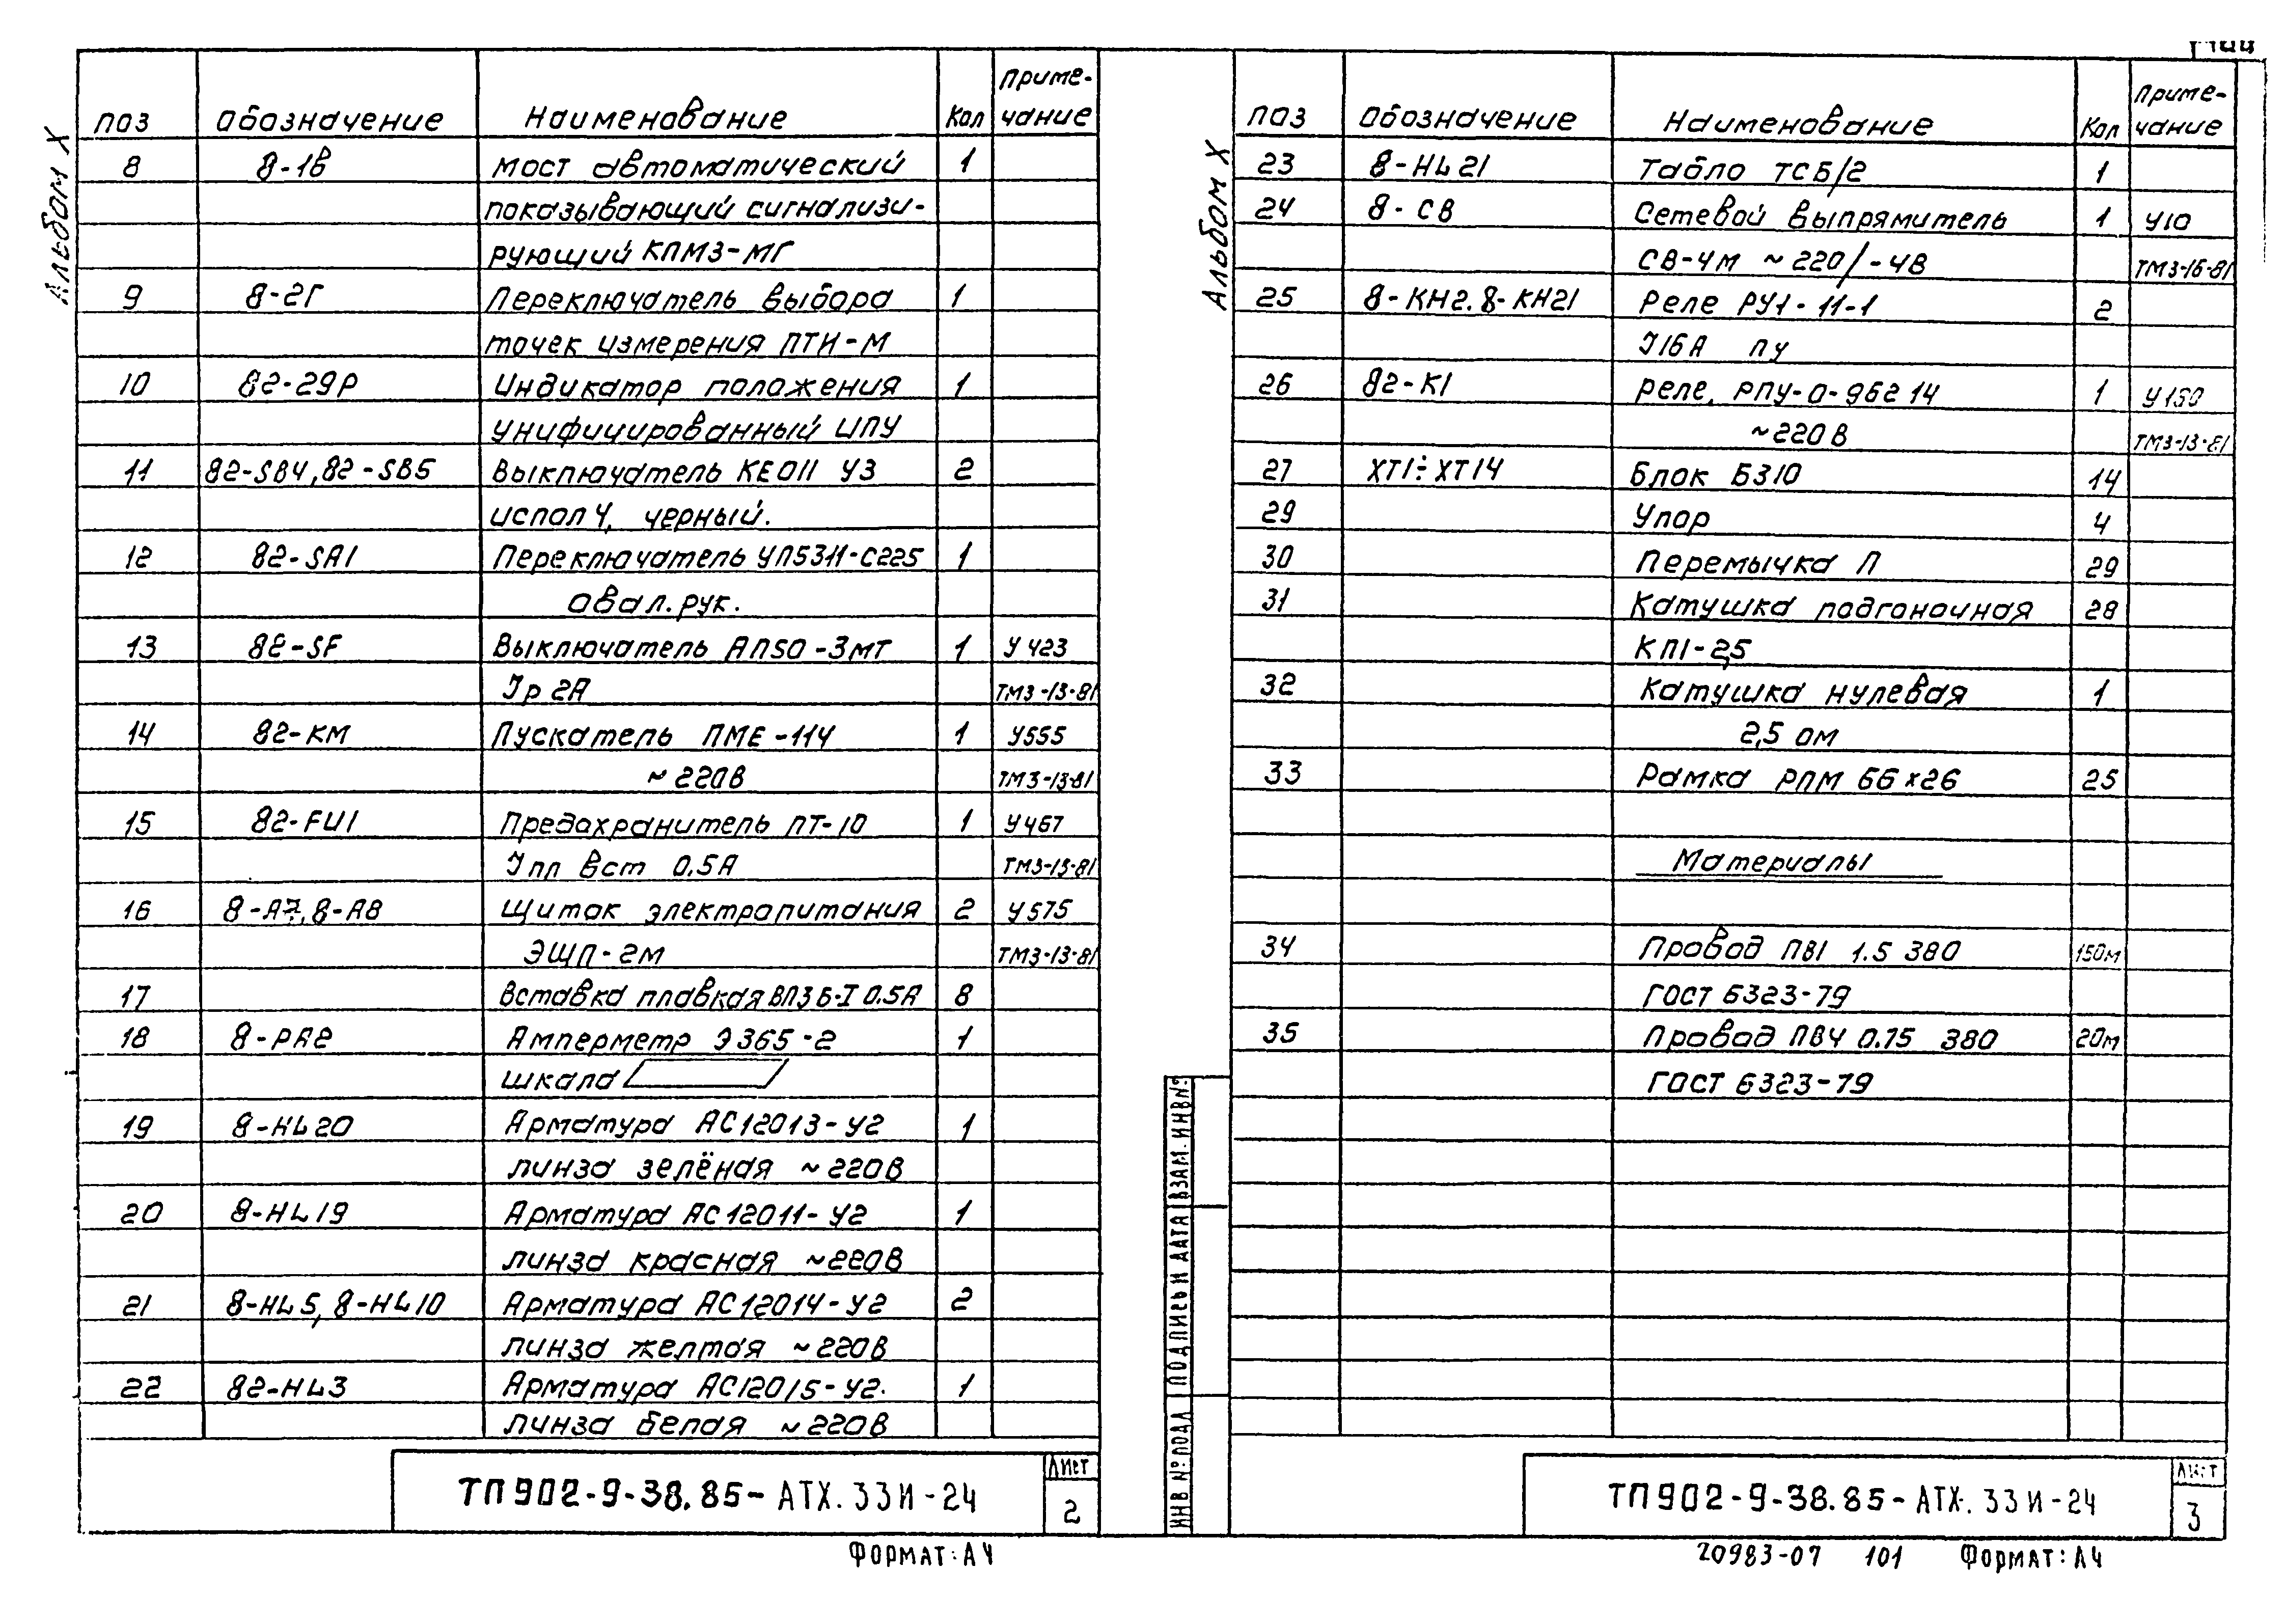 Альбом X
поз обозначение Наименование Кол Приме-
чание
8 8-1в Мост автоматический 1
показывающий сигнализи-
рующий КПМЗ-МГ
9 8-2г Переключатель выбора 1
точек измерения ПТИ-М
10 82-29Р Индикатор положения 1
унифицированный ИПУ
11 82-SB4, 82-SB5 Выключатель КЕ011 У3 2
испол 4, черный.
12 82-SA1 Переключатель УП5311-С225 1
овал. рук.
13 82-SF Выключатель АП50-3МТ 1 У423
Iр 2А ТМ3-13-81
14 82-КМ Пускатель ПМЕ-114 1 У555
~220В ТМ3-13-81
15 82-FU1 Предохранитель ПТ-10 1 У467
Iпл вст 0.5А ТМ3-13-81
16 8-А7, 8-А8 Щиток электропитания 2 У575
ЭЩП-2М ТМ3-13-81
17 Вставка плавкая ВП3Б-I 0.5А 8
18 8-РА2 Амперметр Э365-2 1
шкала
19 8-HL20 Арматура АС12013-У2 1
линза зелёная ~220В
20 8-HL19 Арматура АС12011-У2 1
линза красная ~220В
21 8-HL5, 8-HL10 Арматура АС12014-У2 2
линза желтая ~220В
22 82-HL3 Арматура АС12015-У2. 1
линза белая ~220В
ТП902-9-38.85-АТХ.33И-24
Лист
2
Формат: А4
Альбом X
поз обозначение Наименование Кол Приме-
чание
23 8-HL21 Табло ТСБ/2 1
24 8-СВ Сетевой выпрямитель 1 У10
СВ-4М ~220/-4В ТМ3-16-81
25 8-КН2. 8-КН21 Реле РУ1-11-1 2
I16А ПУ
26 82-К1 Реле, РПУ-0-962 14 1 У130
~220В ТМ3-13-81
27 ХТ1÷ХТ14 Блок БЗ10 14
29 Упор 4
30 Перемычка П 29
31 Катушка подгоночная 28
КП1-2,5
32 Катушка нулевая 1
2,5 ом
33 Рамка РПМ 66х26 25
Материалы
34 Провод ПВ1 1.5 380 150м
ГОСТ 6323-79
35 Провод ПВ4 0.75 380 20м
ГОСТ 6323-79
ИНВ № ПОДЛ ПОДПИСЬ И ДАТА ВЗАМ. ИНВ №
ТП902-9-38.85-АТХ.33И-24
Лист
3
20983-07 101 Формат: А4